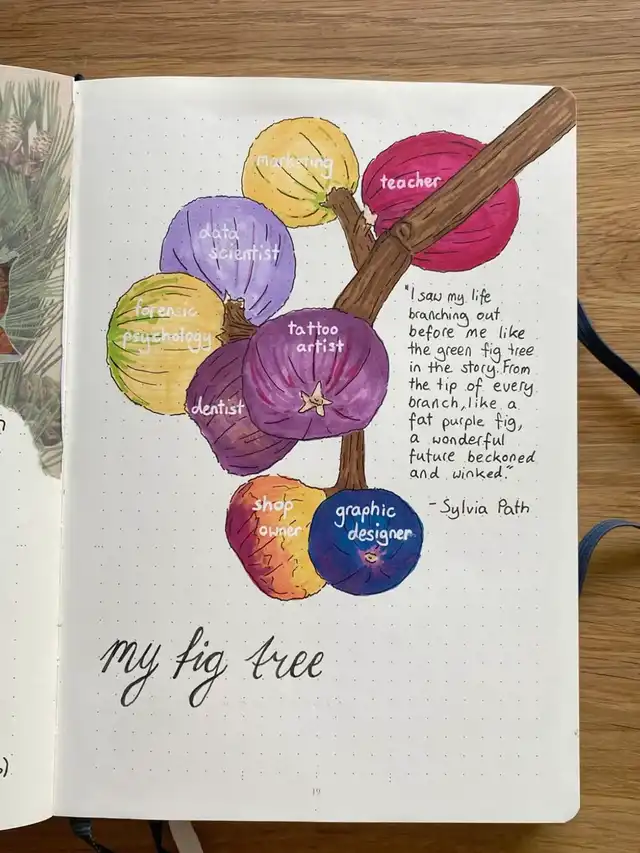 marketing
teacher
data
scientist
forensic
psychology
tattoo
artist
dentist
shop
owner
graphic
designer
"I saw my life
branching out
before me like
the green fig tree
in the story. From
the tip of every
branch, like a
fat purple fig,
a wonderful
future beckoned
and winked."
- Sylvia Path
my fig tree
19